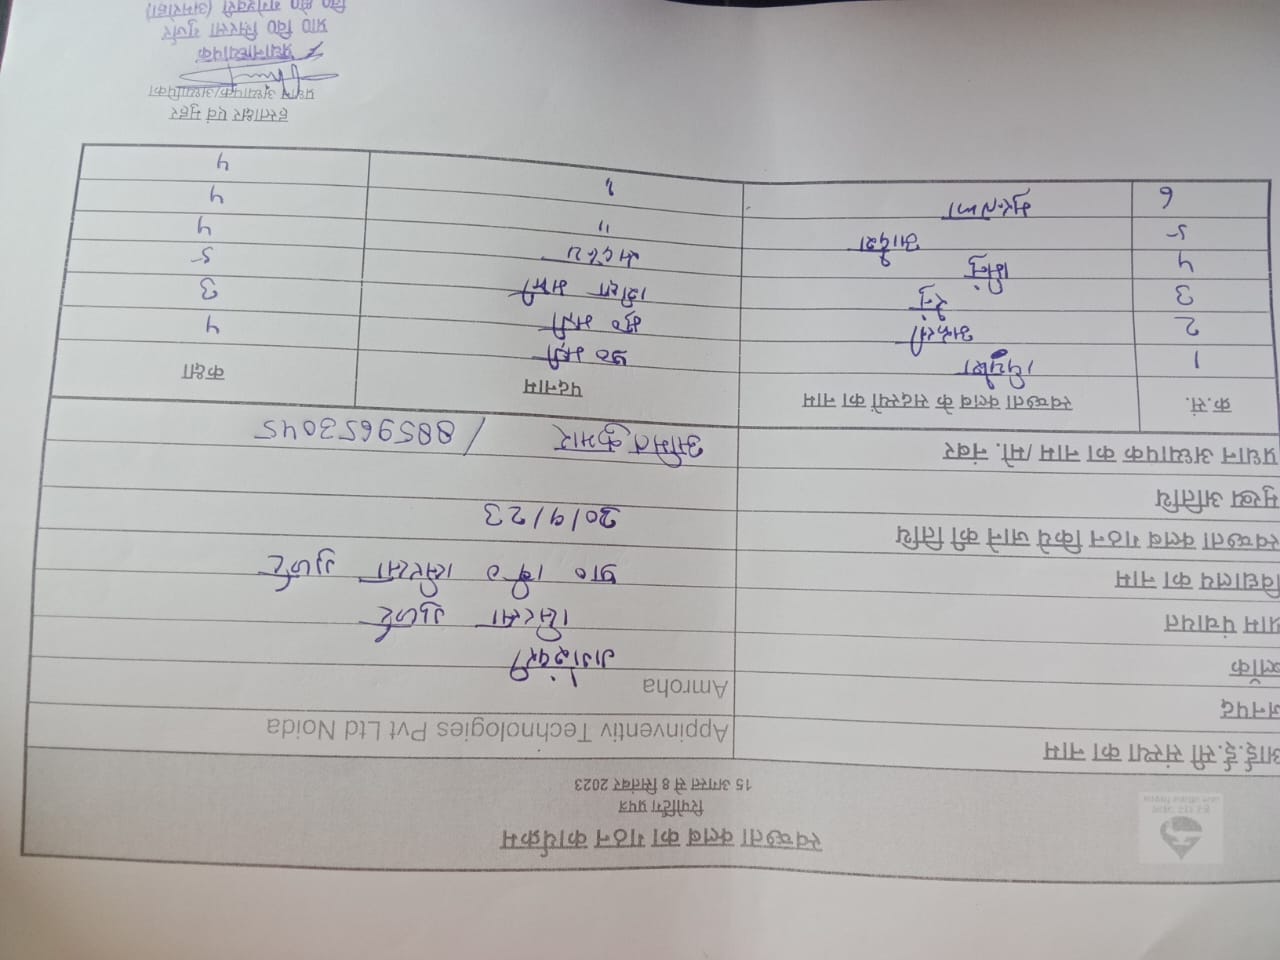 स्वच्छता क्लब का गठन कार्यक्रम
रिपोर्टिंग प्रपत्र
15 अगस्त से 8 सितंबर 2023
आई.ई.सी संस्था का नाम Appinventiv Technologies Pvt Ltd Noida
जनपद Amroha
ब्लॉक गंगेश्वरी
ग्राम पंचायत सिरसा गुर्जर
विद्यालय का नाम प्रा० वि० सिरसा गुर्जर
स्वच्छता क्लब गठन किये जाने की तिथि
मुख्य अतिथि
प्रधान अध्यापक का नाम /मो. नंबर अमित कुमार / 8859653045
क्र.सं. स्वच्छता क्लब के सदस्यों का नाम पदनाम कक्षा
1 प्र० मंत्री
2 मंत्री ५
3 मंत्री 3
४ सदस्य ५
५ " ४
6 ४
हस्ताक्षर एवं मुहर
प्रधान अध्यापक/अध्यापिका
प्रधानाध्यापक
प्रा० वि० सिरसा गुर्जर
वि० क्षे० गंगेश्वरी (अमरोहा)